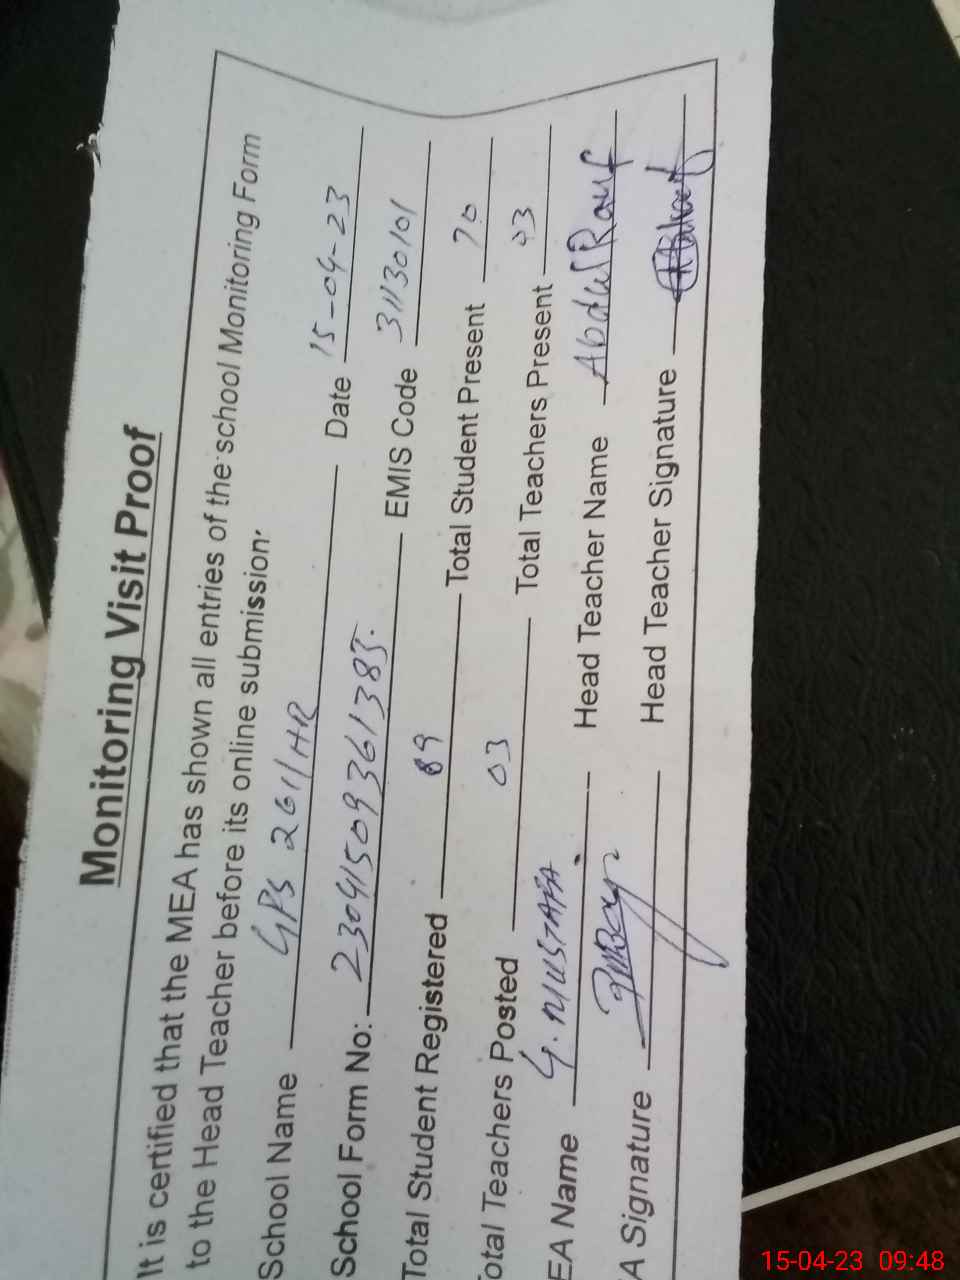 Monitoring Visit Proof
It is certified that the MEA has shown all entries of the school Monitoring Form
to the Head Teacher before its online submission.
School Name GPS 261/HR Date 15-04-23
School Form No: 23041509361383. EMIS Code 31130101
Total Student Registered 89 Total Student Present 70
otal Teachers Posted 03 Total Teachers Present 03
EA Name G. MUSTAFA Head Teacher Name Abdul Rauf
A Signature Head Teacher Signature
15-04-23 09:48